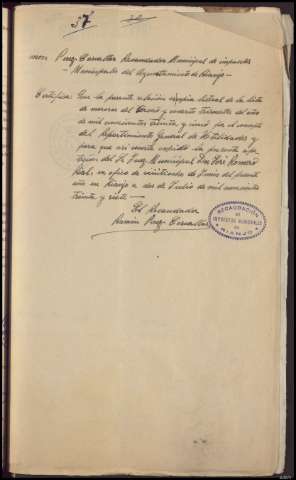 57
Puig Carvalho Recaudador Municipal de impuestos
Municipales del Ayuntamiento de Rianjo.
Certifica: Que la presente relación es copia literal de la lista
de morosos del tercero y cuarto trimestre del año
de mil novecientos treinta y cinco por el concepto
del Repartimiento General de Utilidades y
para que así conste expido la presente a pe-
tición del Sr. Juez Municipal Don José Romero
en oficio de veintitres de Junio del presente
año en Rianjo a dos de Julio de mil novecientos
treinta y siete.
El Recaudador
Ramón Puig Carvalho
RECAUDACIÓN
DE
IMPUESTOS MUNICIPALES
RIANJO